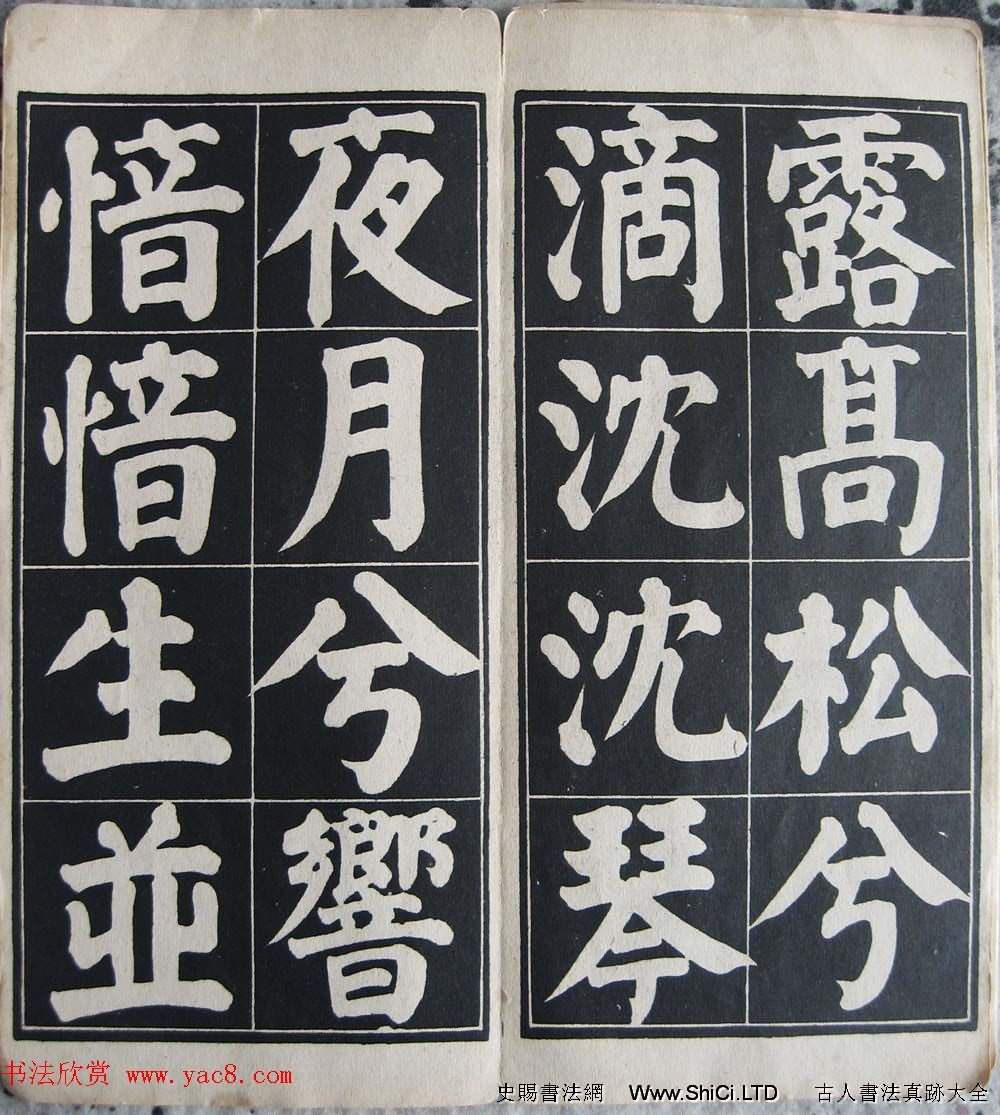 露髙松兮
滴沈沈琴
夜月兮響
愔愔生並
书法欣赏 www.yac8.com
史賜書法網 Www.ShiCi.LTD 古人書法真跡大全